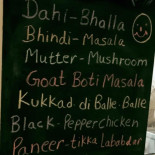 Dahi-Bhalla
Bhindi-Masala
Mutter-Mushroom
Goat Boti Masala
Kukkad di Balle-Balle
Black-Pepperchicken
Paneer-tikka Lababdar